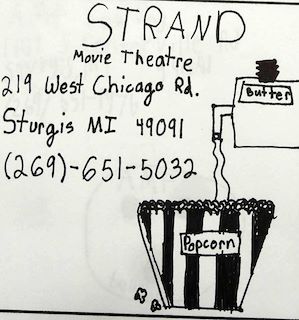 STRAND
Movie Theatre
219 West Chicago Rd.
Sturgis MI 49091
(269)-651-5032
Butter
Popcorn